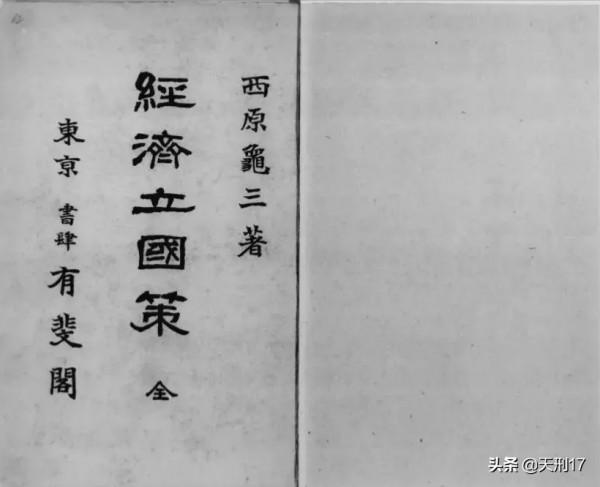 西原龜三著
經濟立國策 全
東京 書肆 有斐閣
头条 @天刑17